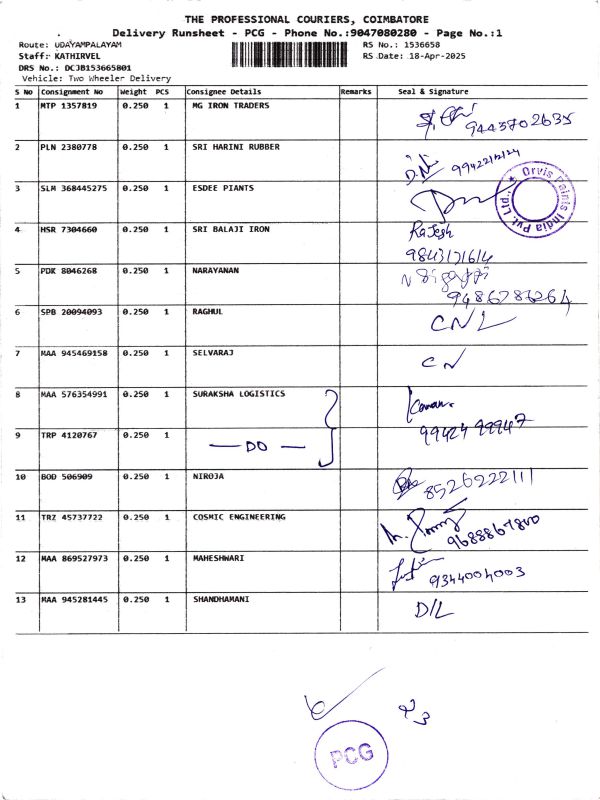 THE PROFESSIONAL COURIERS, COIMBATORE
Delivery Runsheet - PCG - Phone No.:9047080280 - Page No.:1
Route: UDAYAMPALAYAM
RS No.: 1536658
Staff: KATHIRVEL
RS Date: 18-Apr-2025
DRS No.: DCJB153665801
Vehicle: Two Wheeler Delivery
S No Consignment No Weight PCS Consignee Details Remarks Seal & Signature
1 MTP 1357819 0.250 1 MG IRON TRADERS
9443702635
2 PLN 2380778 0.250 1 SRI HARINI RUBBER
3 SLM 368445275 0.250 1 ESDEE PIANTS
Orvis Paints India Pvt. Ltd.,
4 HSR 7304660 0.250 1 SRI BALAJI IRON Rajesh
9843171614
5 PDK 8046268 0.250 1 NARAYANAN
9486786264
6 SPB 20094093 0.250 1 RAGHUL CNL
7 MAA 945469158 0.250 1 SELVARAJ CN
8 MAA 576354991 0.250 1 SURAKSHA LOGISTICS
99424 99947
9 TRP 4120767 0.250 1 — DO —
10 BOD 506909 0.250 1 NIROJA 8526222111
11 TRZ 45737722 0.250 1 COSMIC ENGINEERING
9688867800
12 MAA 869527973 0.250 1 MAHESHWARI 9344004003
13 MAA 945281445 0.250 1 SHANDHAMANI D/L
PCG